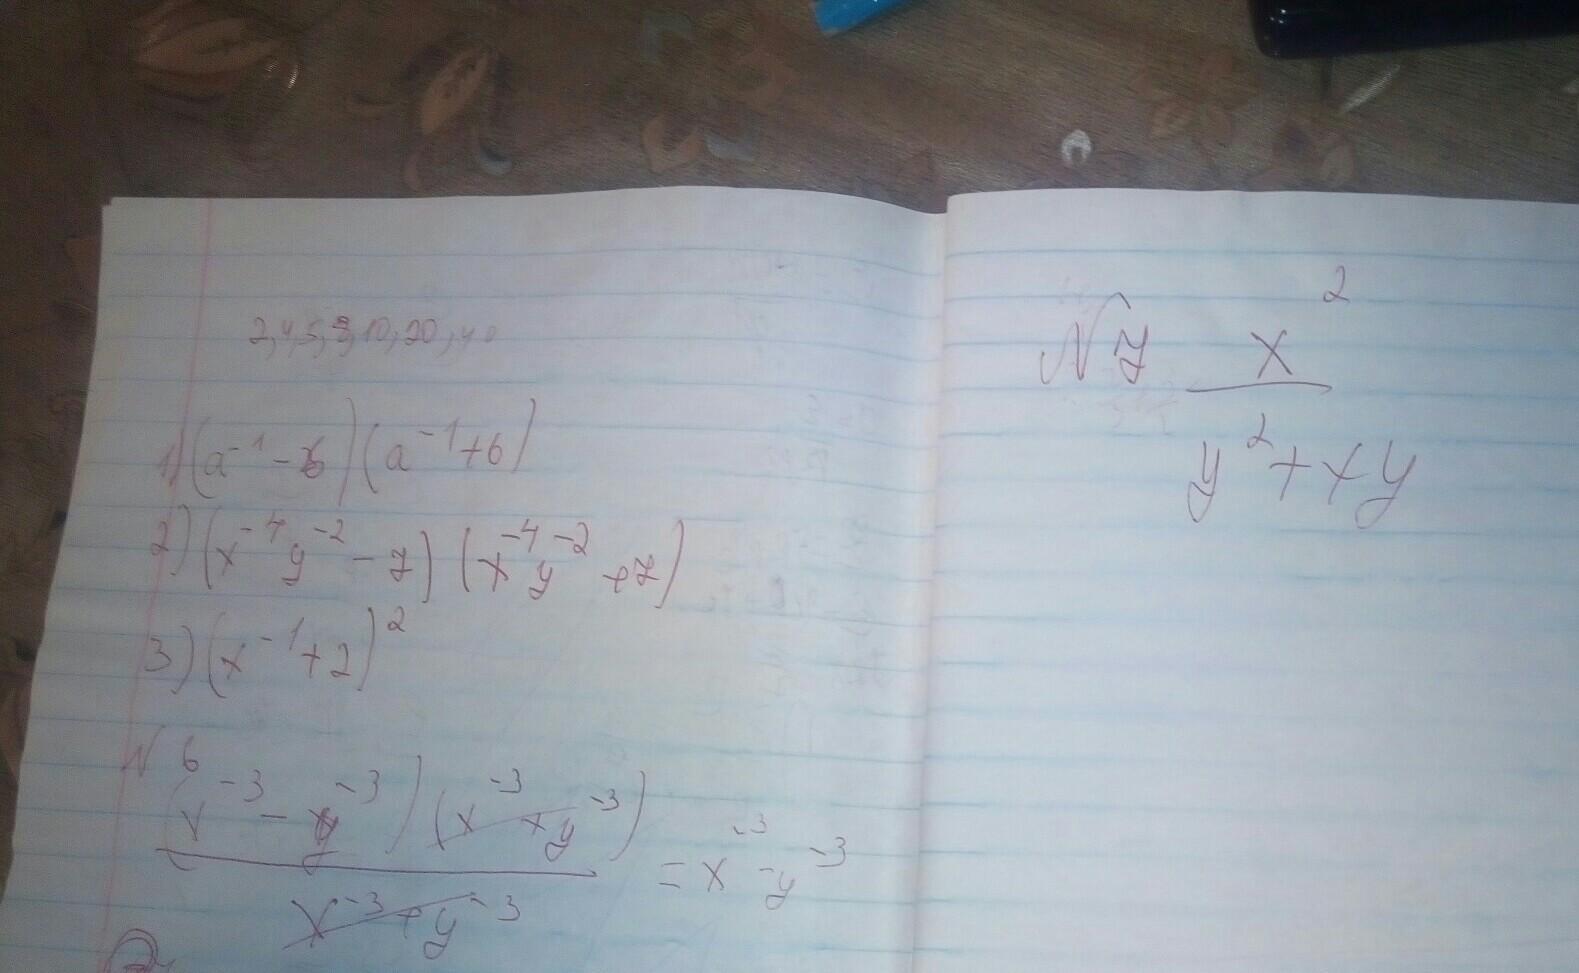 2,4,5,8,10,20,40
1) (a⁻¹-6)(a⁻¹+6)
2) (x⁻⁴y⁻²-7)(x⁻⁴y⁻²+7)
3) (x⁻¹+2)²
N 6
(x⁻³-y⁻³)(x⁻³+y⁻³)
= x⁻³-y⁻³
x⁻³+y⁻³
N 7 x²
y²+xy